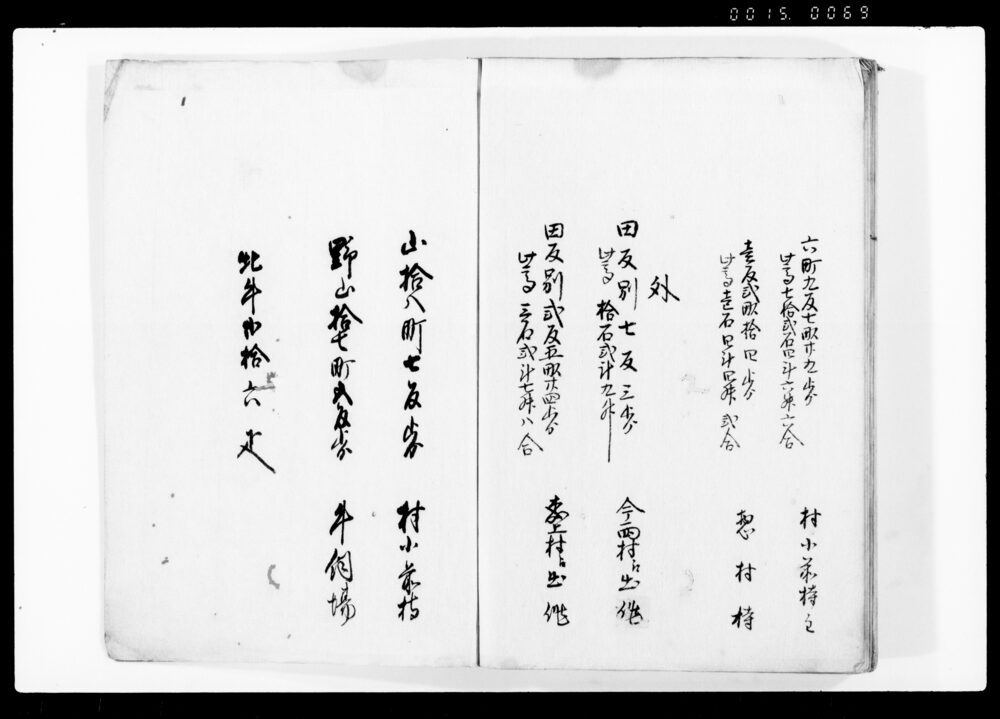 0015. 0069
六町九反七畝廿九歩 村小前持主
此高七拾弐石四斗六升六合
壱反弐畝拾四歩 惣村持
此高壱石四斗四升弐合
外
田反別七反三歩 今西村ゟ出作
此高拾石弐斗九升
田反別弐反五畝廿四歩 村ゟ出作
此高三石弐斗七升八合
山拾八町七反歩 村小前持
野山拾七町弐反歩 牛飼場
此牛 拾六疋